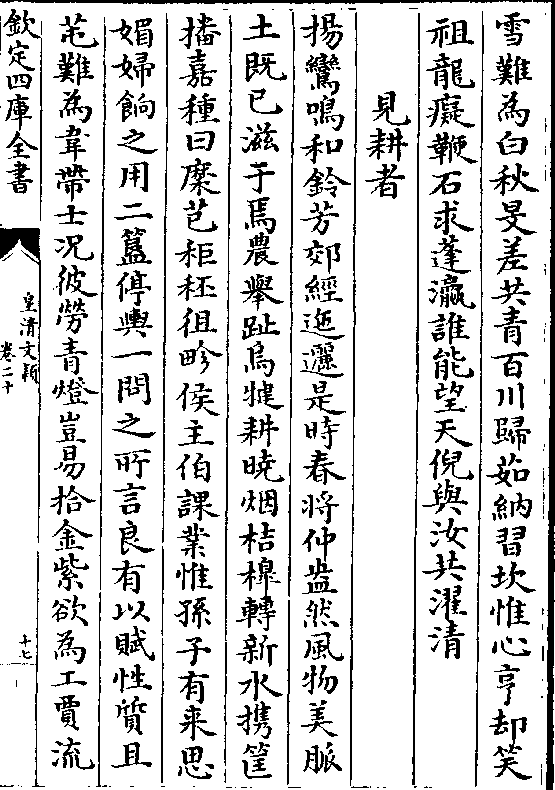 雪難為白秋旻差共青百川歸茹納習坎惟心亨却笑
祖龍癡鞭石求蓬瀛誰能望天倪與汝共濯清
見耕者
揚鸞鳴和鈴芳郊經迤邐是時春将仲盎然風物美脈
土既已滋于焉農舉趾烏犍耕曉烟桔橰轉新水携筐
播嘉種曰穈芑秬秠徂畛侯主伯課業惟孫子有来思
媚婦餉之用二簋停輿一問之所言良有以賦性質且
芚難為韋帶士况彼勞青燈豈易拾金紫欲為工賈流
欽定四庫全書
皇清文穎
卷二十
十七